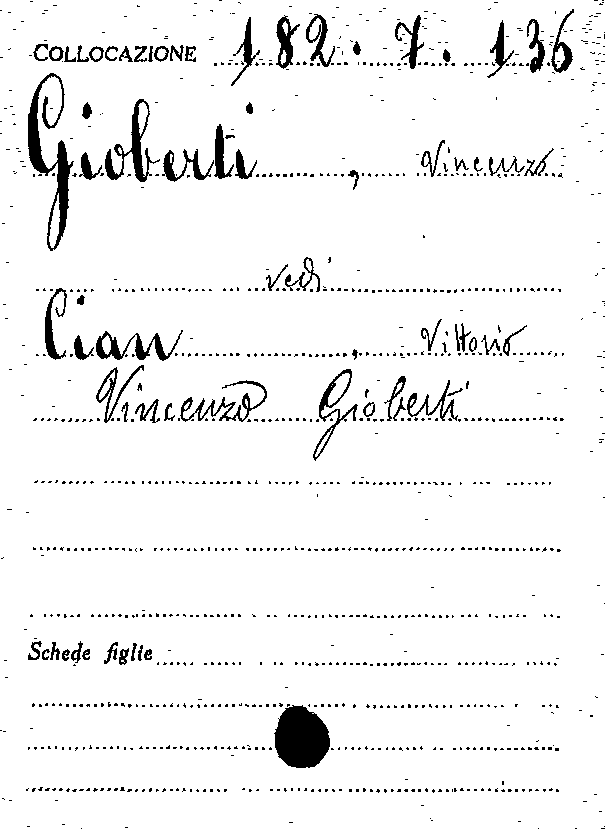 COLLOCAZIONE 182.7.136
Gioberti, Vincenzo
vedi
Cian, Vittorio
Vincenzo Gioberti
Schede figlie